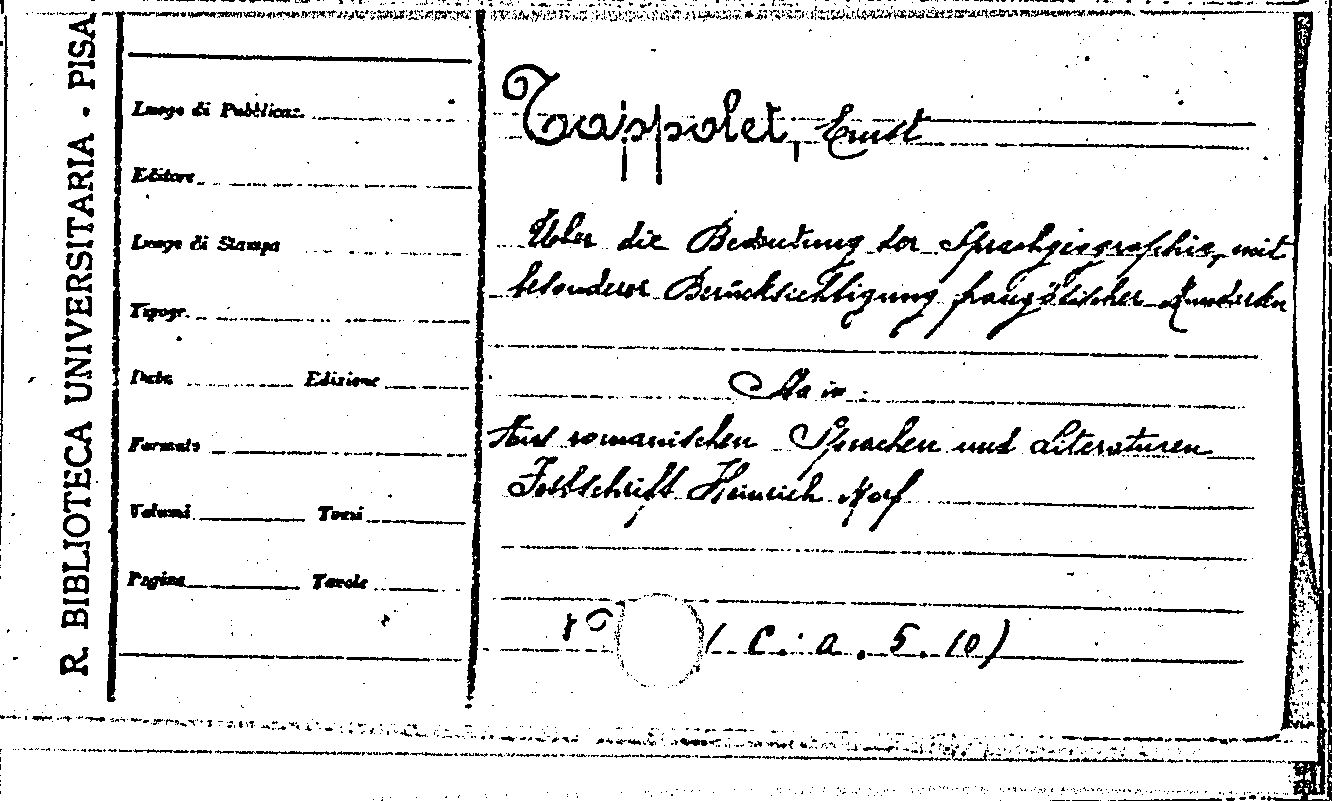 R. BIBLIOTECA UNIVERSITARIA - PISA
Luogo di Pubblicaz.
Editore
Luogo di Stampa
Tipogr.
Data Edizione
Formato
Volumi Tomi
Pagine Tavole
Tappolet, Ernst
Über die Bedeutung der Sprachgeographie, mit
besonderer Berücksichtigung französischer Mundarten
Aus romanischen Sprachen und Literaturen
Festschrift Heinrich Morf
8° (C. a. 5. 10)